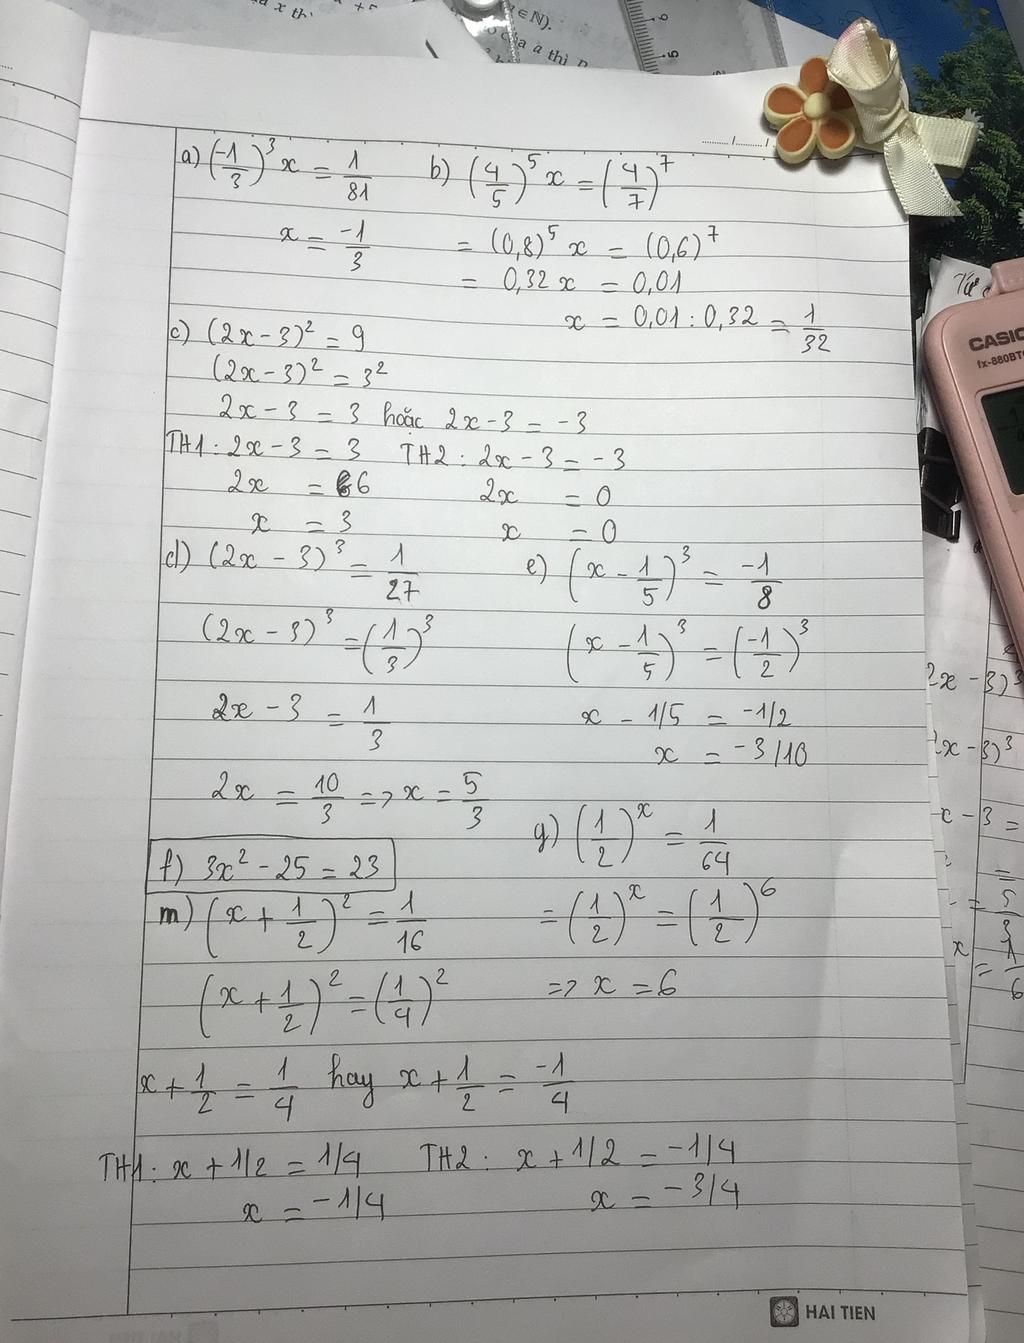 ∈N).
a) (-1/3)³ x = 1/81
b) (4/5)⁵ x = (4/7)⁷
x = -1/3
= (0,8)⁵ x = (0,6)⁷
= 0,32x = 0,01
x = 0,01 : 0,32 = 1/32
c) (2x - 3)² = 9
(2x - 3)² = 3²
2x - 3 = 3 hoặc 2x - 3 = -3
TH1: 2x - 3 = 3 TH2: 2x - 3 = -3
2x = 6 2x = 0
x = 3 x = 0
d) (2x - 3)³ = 1/27
(2x - 3)³ = (1/3)³
2x - 3 = 1/3
2x = 10/3 => x = 5/3
e) (x - 1/5)³ = -1/8
(x - 1/5)³ = (-1/2)³
x - 1/5 = -1/2
x = -3/10
f) 3x² - 25 = 23
g) (1/2)ˣ = 1/64
= (1/2)ˣ = (1/2)⁶
=> x = 6
m) (x + 1/2)² = 1/16
(x + 1/2)² = (1/4)²
x + 1/2 = 1/4 hay x + 1/2 = -1/4
TH1: x + 1/2 = 1/4 TH2: x + 1/2 = -1/4
x = -1/4 x = -3/4
HAI TIEN
CASIO
fx-880BTG
2x - 3)³
2x - 3)³
x - 3 =
= 5/3
x = 1/6